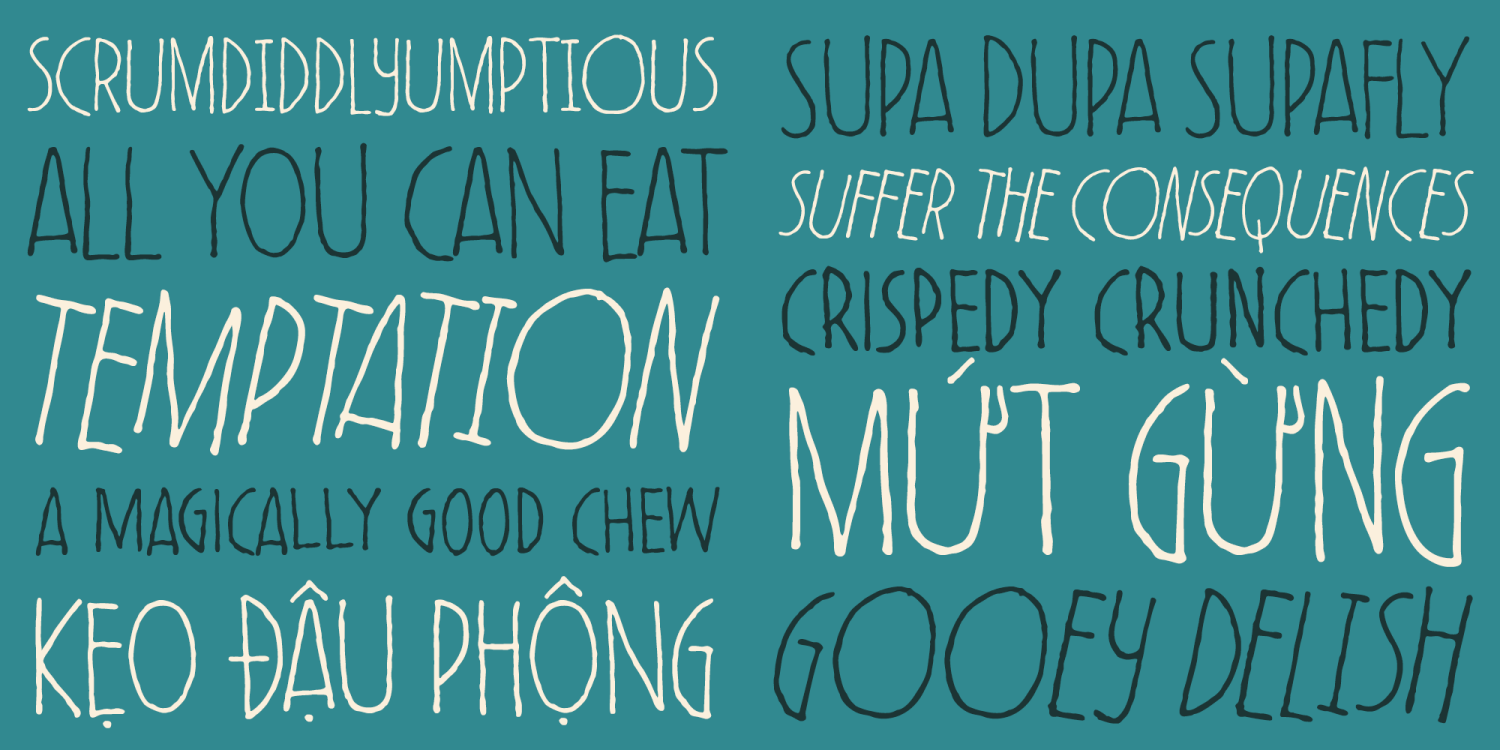 SCRUMDIDDLYUMPTIOUS
ALL YOU CAN EAT
TEMPTATION
A MAGICALLY GOOD CHEW
KẸO ĐẬU PHỘNG
SUPA DUPA SUPAFLY
SUFFER THE CONSEQUENCES
CRISPEDY CRUNCHEDY
MỨT GỪNG
GOOEY DELISH